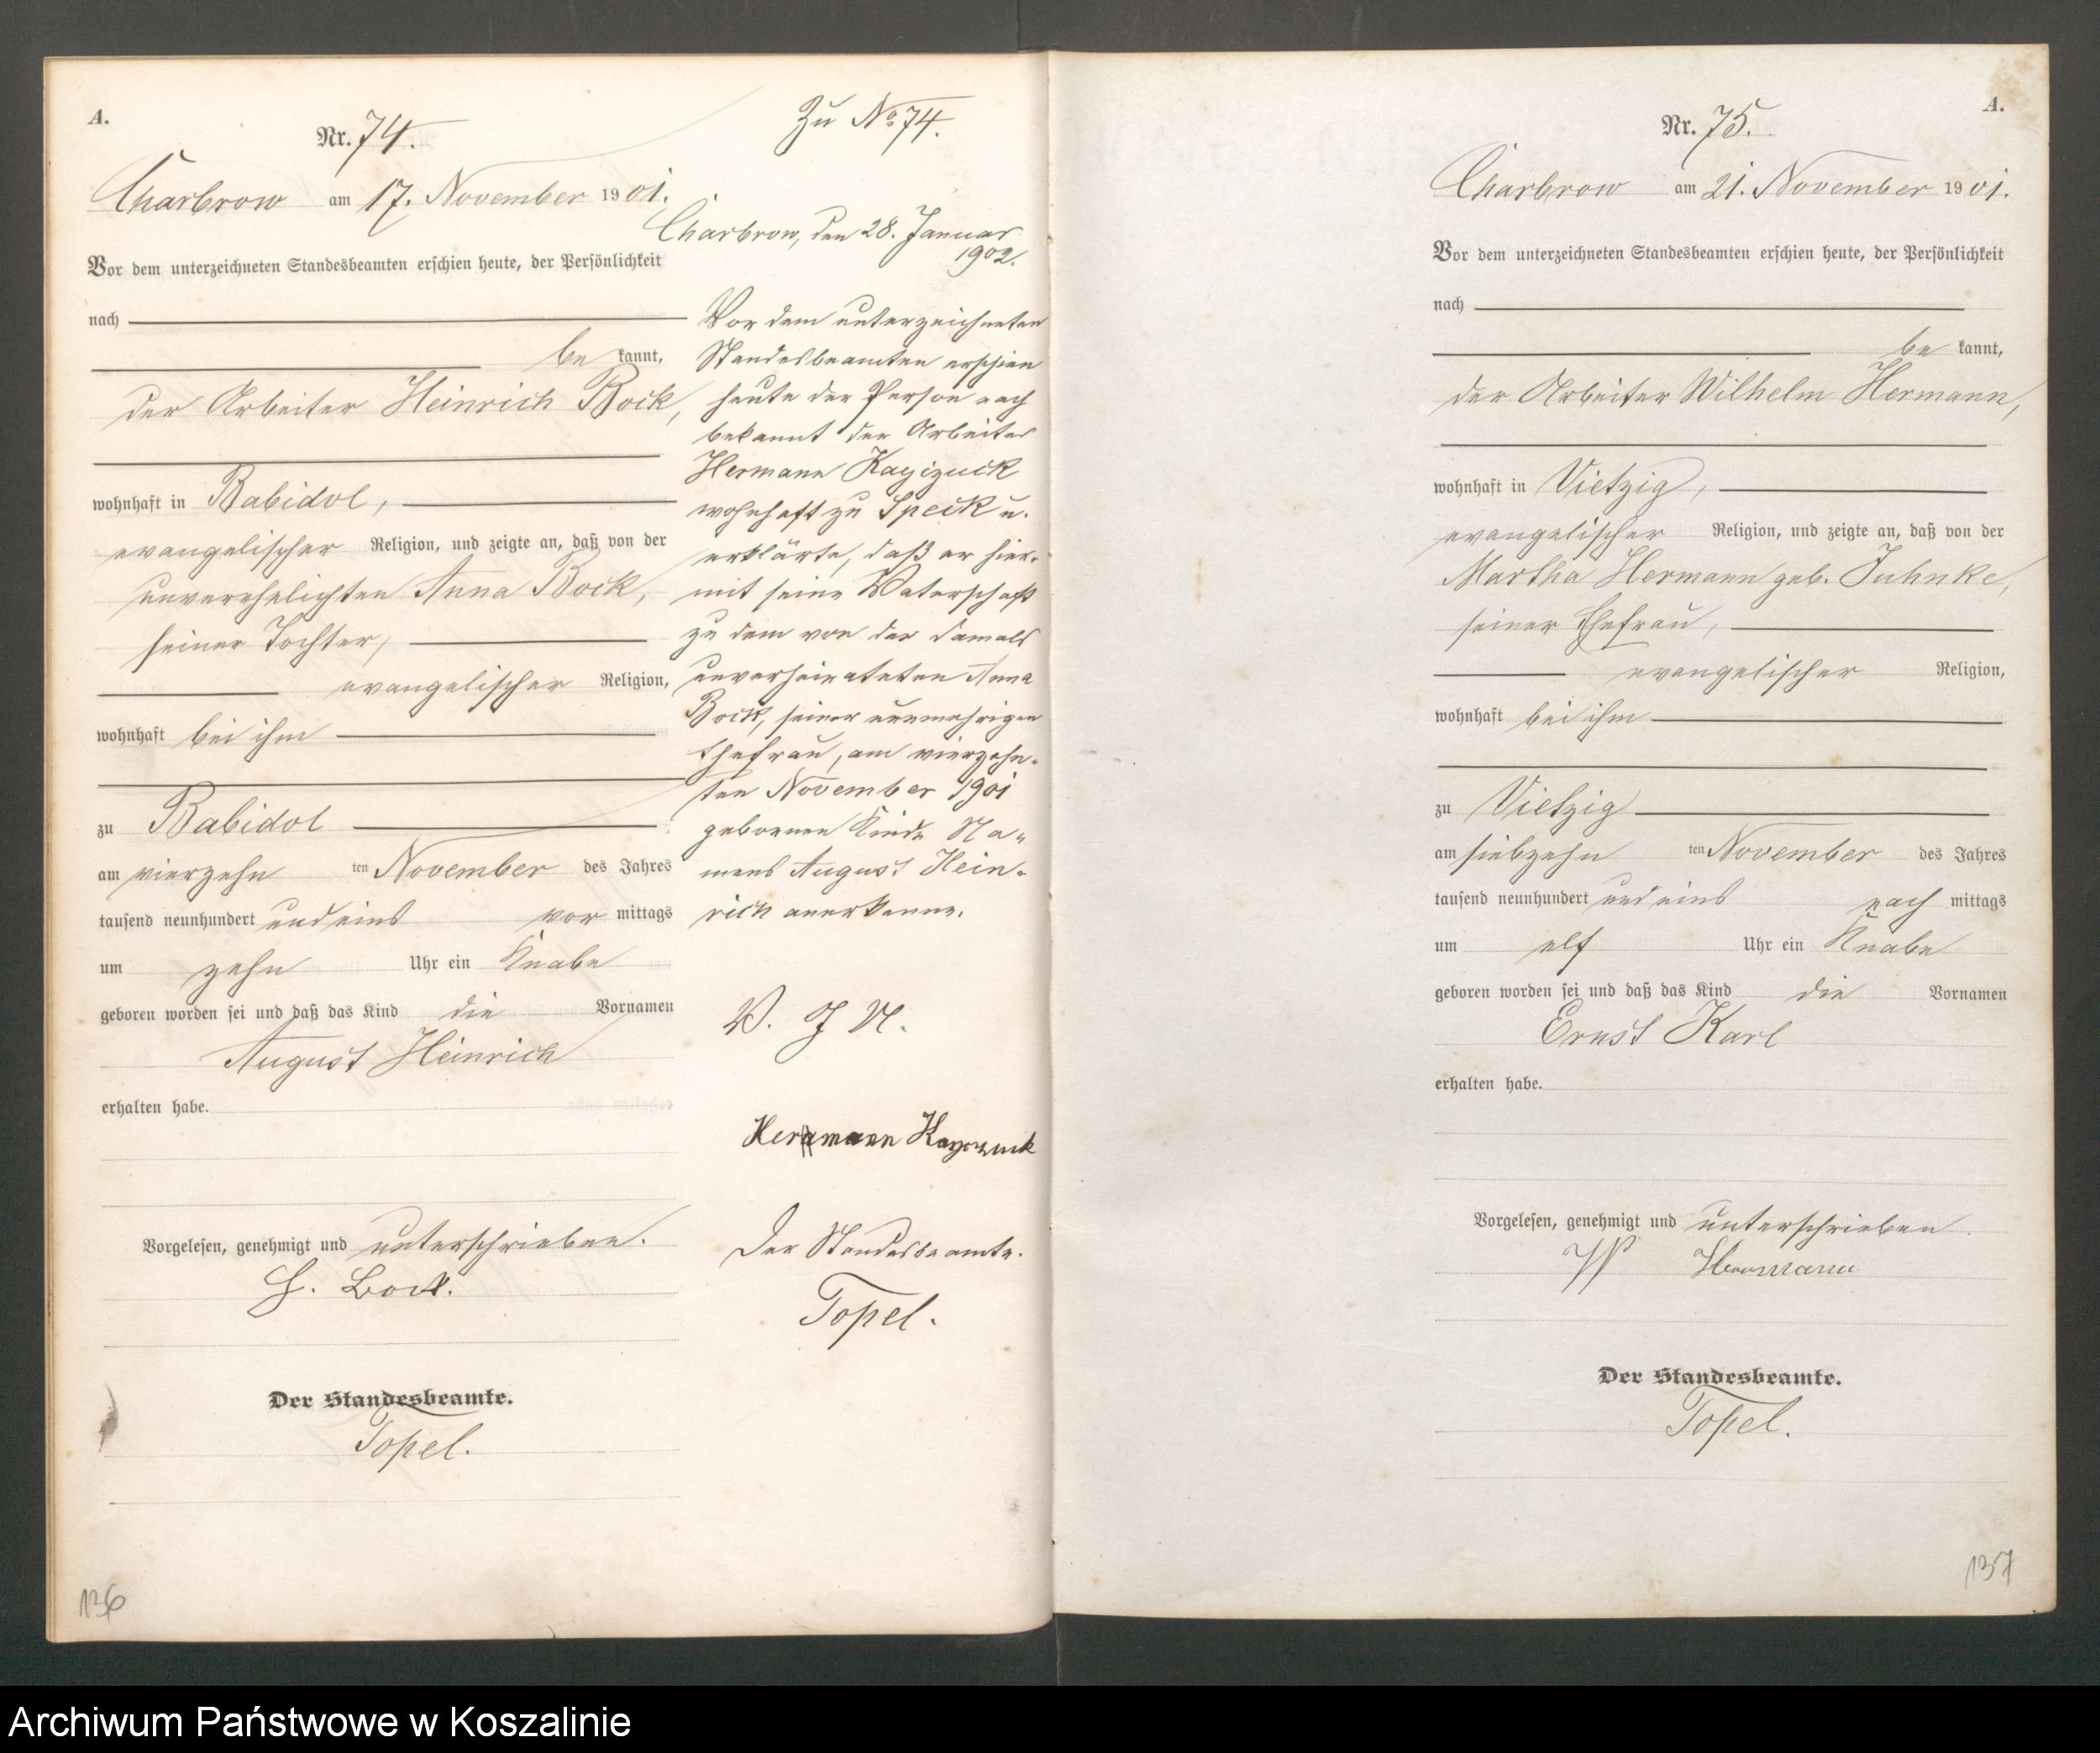 A.
Nr. 74.
Charbrow am 17. November 1901.
Vor dem unterzeichneten Standesbeamten erschien heute, der Persönlichkeit
nach
be kannt,
der Arbeiter Heinrich Bock,
wohnhaft in Babidol,
evangelischer Religion, und zeigte an, daß von der
unverehelichten Anna Bock,
seiner Tochter,
evangelischer Religion,
wohnhaft bei ihm
zu Babidol
am vierzehn ten November des Jahres
tausend neunhundert und eins vor mittags
um zehn Uhr ein Knabe
geboren worden sei und daß das Kind die Vornamen
August Heinrich
erhalten habe.
Vorgelesen, genehmigt und unterschrieben.
H. Bock.
Der Standesbeamte.
Topel.
136
Zu No 74.
Charbrow, den 28. Januar
1902.
Vor dem unterzeichneten
Standesbeamten erschien
heute der Person nach
bekannt der Arbeiter
Hermann
wohnhaft zu Speck u.
erklärte, daß er hier-
mit seine Vaterschaft
zu dem von der damals
unverheirateten Anna
Bock, seiner nunmehrigen
Ehefrau, am vierzehn-
ten November 1901
geborenen Kinde Na-
mens August Hein-
rich anerkenne.
V. g. U.
Hermann
Der Standesbeamte.
Topel.
A.
Nr. 75.
Charbrow am 21. November 1901.
Vor dem unterzeichneten Standesbeamten erschien heute, der Persönlichkeit
nach
be kannt,
der Arbeiter Wilhelm Hermann,
wohnhaft in Vietzig,
evangelischer Religion, und zeigte an, daß von der
Martha Hermann geb. Juhnke,
seiner Ehefrau,
evangelischer Religion,
wohnhaft bei ihm
zu Vietzig
am siebzehn ten November des Jahres
tausend neunhundert und eins nach mittags
um elf Uhr ein Knabe
geboren worden sei und daß das Kind die Vornamen
Ernst Karl
erhalten habe.
Vorgelesen, genehmigt und unterschrieben.
W Hermann
Der Standesbeamte.
Topel.
137
Archiwum Państwowe w Koszalinie